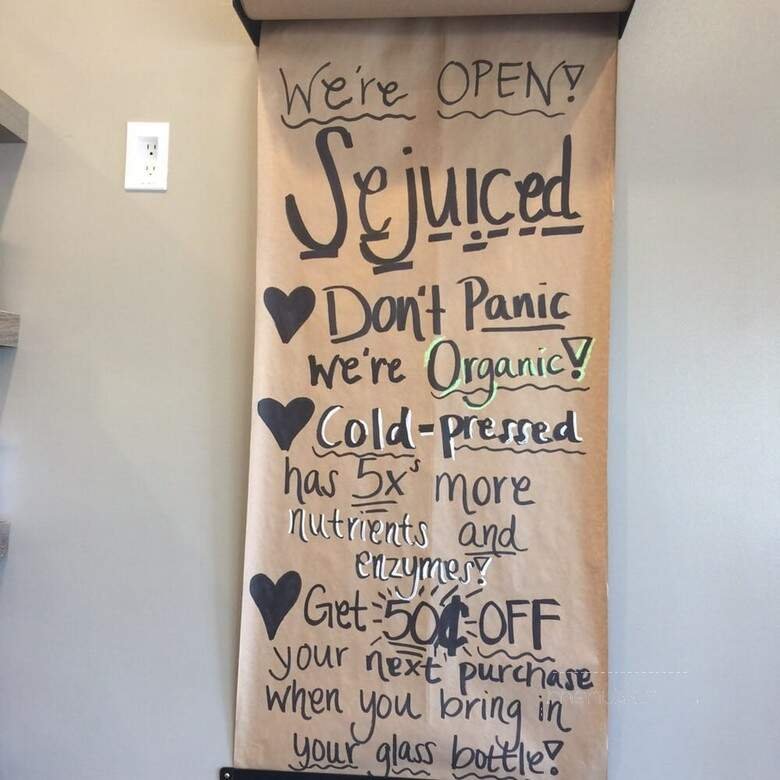 We're OPEN!
Sejuiced
Don't Panic
we're Organic!
Cold-pressed
has 5x's more
nutrients and
enzymes!
Get 50¢ OFF
your next purchase
when you bring in
your glass bottle!